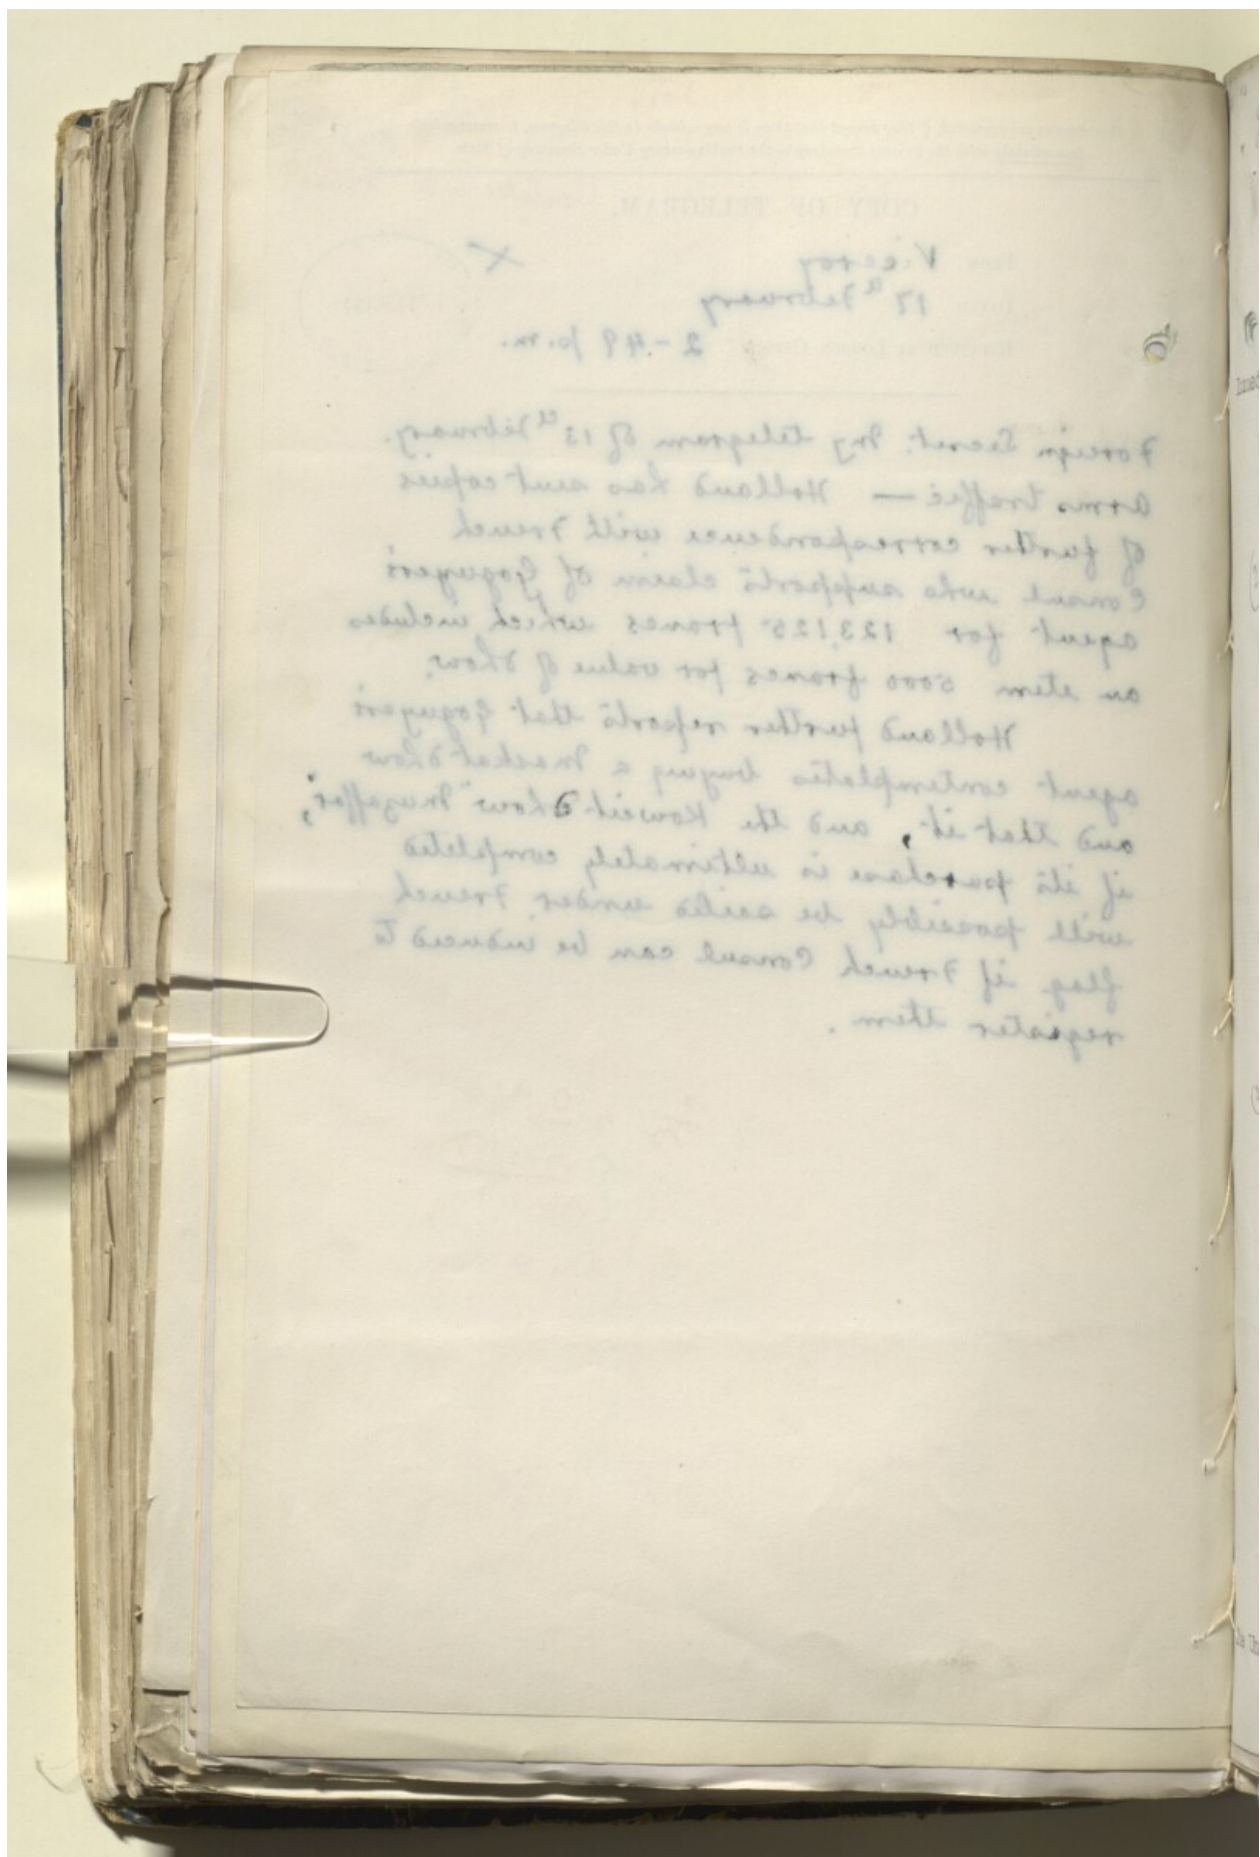 COPY OF TELEGRAM.
From Viceroy
Dated 17th February
Received at London Office 2-49 p.m.
Foreign Secret. My telegram of 13th February.
Arms traffic — Holland has sent copies
of further correspondence with French
Consul who supports claim of Goguyer's
agent for 123,125 francs which includes
an item 5000 francs for value of dhow.
Holland further reports that Goguyer's
agent contemplates buying a Maskat dhow
and that it, and the Koweit dhow "Muzaffar",
if its purchase is ultimately completed
will possibly be sailed under French
flag if French Consul can be induced to
register them.